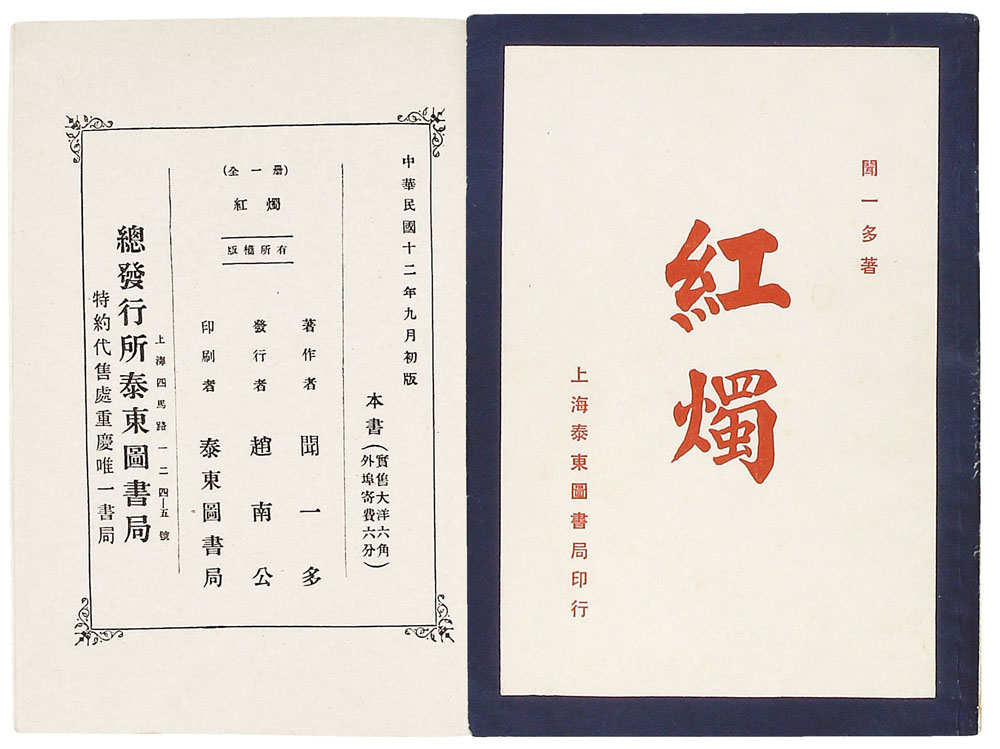 聞一多著
紅燭
上海泰東圖書局印行
中華民國十二年九月初版
本書(實售大洋六角
外埠寄費六分)
(全一册)
紅燭
版權所有
著作者 聞一多
發行者 趙南公
印刷者 泰東圖書局
上海四馬路一二四—五號
總發行所泰東圖書局
特約代售處重慶唯一書局